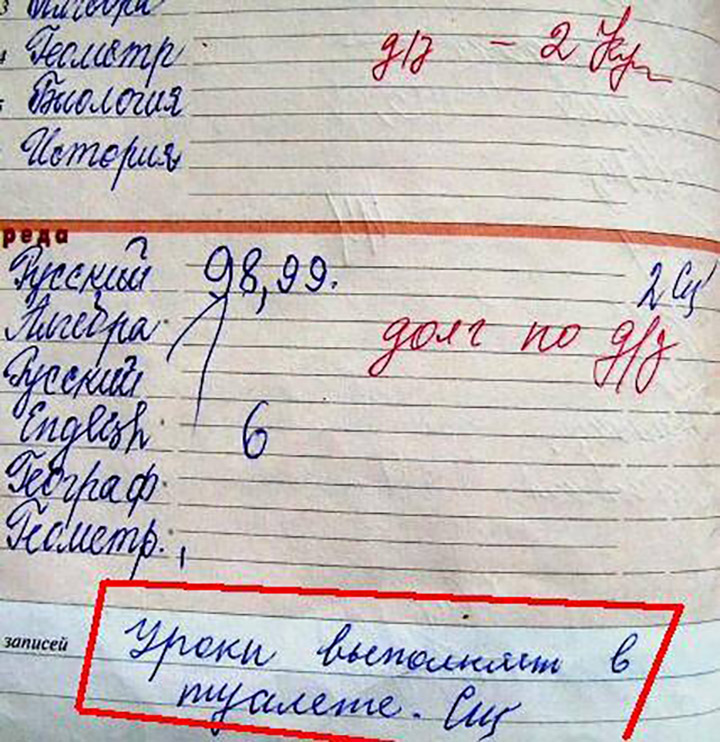 3 Алгебра
4 Геометр д/з - 2
5 Биология
История
реда
Русский 98,99. 2 Сщ
Алгебра. долг по д/з
Русский
English. 6
Географ.
Геометр.
записей Уроки выполняет в
туалете. Сщ